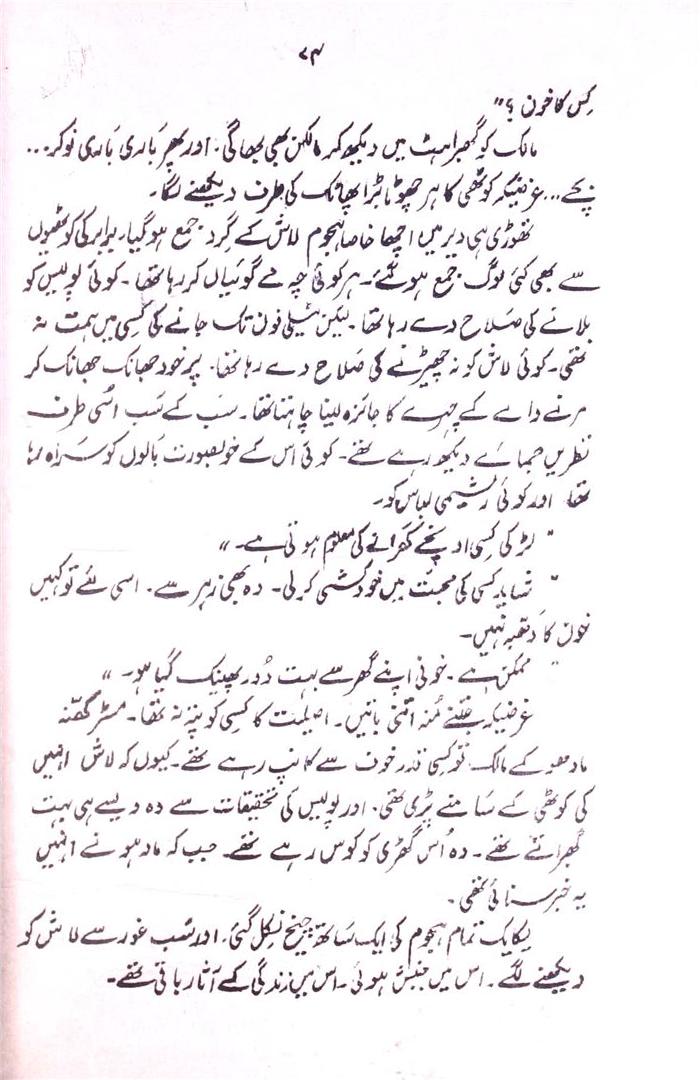 ۷۴
کِس کا خون ؟"
مالک کو گھبراہٹ میں دیکھ کر مالکن بھی بھاگی۔ اور پھر بَاری بَاری نوکر...
بچے... غرضیکہ کوٹھی کا ہر چھوٹا بڑا پھاٹک کی طرف دیکھنے لگا۔
تھوڑی ہی دیر میں اچھا خاصا ہجوم لاش کے گرد جمع ہو گیا۔ برابر کی کوٹھیوں
سے بھی کئی لوگ جمع ہو گئے۔ ہر کوئی چہ مے گوئیاں کر رہا تھا۔ کوئی پولیس کو
بلانے کی صَلاح دے رہا تھا۔ لیکن ٹیلی فون تک جانے کی کسی میں ہمت نہ
تھی۔ کوئی لاش کو نہ چھیڑنے کی صَلاح دے رہا تھا۔ پر خود جھانک جھانک کر
مرنے والے کے چہرے کا جائزہ لینا چاہتا تھا۔ سَب کے سَب اسُی طرف
نظریں جمائے دیکھ رہے تھے۔ کوئی اس کے خوبصورت بَالوں کو سَراہ رہا
تھا اور کوئی ریشمی لباس کو۔
" لڑکی کسی اونچے گھرانے کی معلوم ہوتی ہے۔ "
" شاید کسی کی محبّت میں خودکشی کر لی۔ وہ بھی زہر سے۔ اسی لئے تو کہیں
خون کا دَھبّہ نہیں۔
" ممکن ہے۔ خونی اپنے گھر سے بہت دُور پھینک گیا ہو۔ "
غرضیکہ جتنے مُنہ اتنی باتیں۔ اصلیت کا کسی کو پتہ نہ تھا۔ مسٹر کھنّہ
مادھو کے مالک تو کسی قدر خوف سے کانپ رہے تھے۔ کیوں کہ لاش انہیں
کی کوٹھی کے سَامنے پڑی تھی۔ اور پولیس کی تحقیقات سے وہ ویسے ہی بہت
گھبراتے تھے۔ وہ اُس گھڑی کو کوس رہے تھے۔ جب کہ مادھو نے انہیں
یہ خبر سنائی تھی۔
یکایک تمام ہجوم کی ایک سَاتھ چیخ نکل گئی۔ اور سَب غور سے لاش کو
دیکھنے لگے۔ اس میں جنبش ہوئی۔ اس میں زندگی کے آثار باقی تھے۔